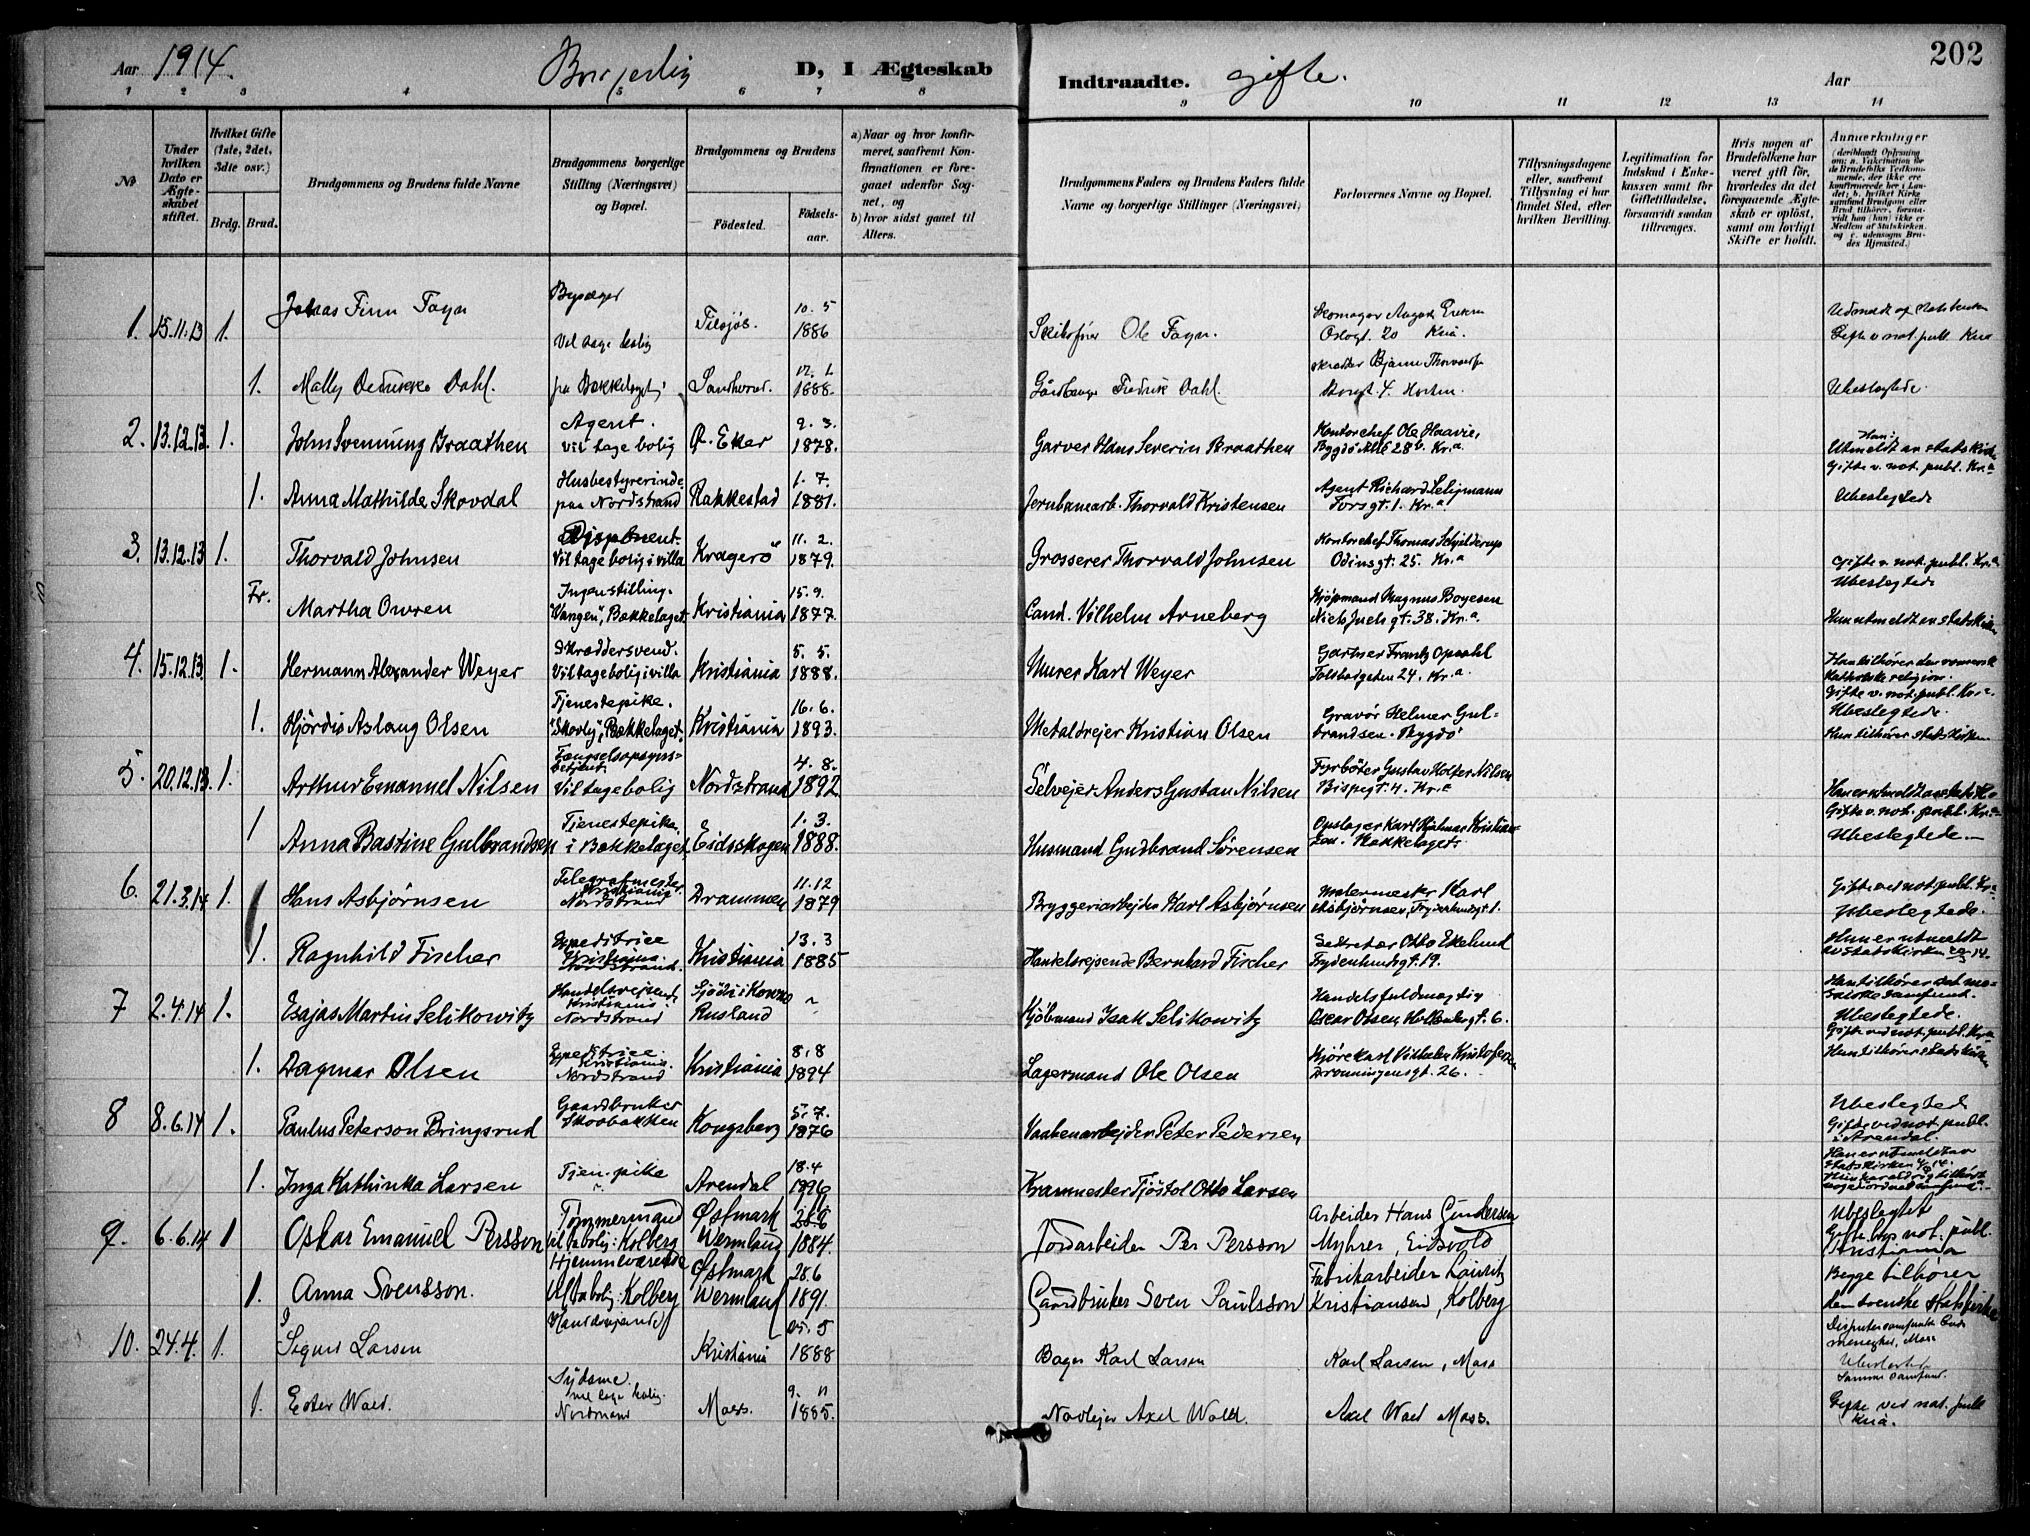 Aar 1914. Borgerlig D, I Ægteskab Indtraadte. gifte. Aar 202
1 2 3 4 5 6 7 8 9 10 11 12 13 14
No
Under hvilken Dato er Ægteskabet stiftet.
Hvilket Gifte (1ste, 2det, 3dte osv.)
Brdg. Brud.
Brudgommens og Brudens fulde Navne
Brudgommens borgerlige Stilling (Næringsvei) og Bopæl.
Brudgommens og Brudens
Fødested. Fødselsaar.
a) Naar og hvor konfirmeret, saafremt Konfirmationen er foregaaet udenfor Sognet, og
b) hvor sidst gaaet til Alters.
Brudgommens Faders og Brudens Faders fulde Navne og borgerlige Stillinger (Næringsvei)
Forlovernes Navne og Bopæl.
Tillysningsdagene eller, saafremt Tillysning ei har fundet Sted, efter hvilken Bevilling.
Legitimation for Indskud i Enkekassen samt for Giftetilladelse, forsaavidt saadan tiltrænges.
Hvis nogen af Brudefolkene har været gift før, hvorledes da det foregaaende Ægteskab er opløst, samt om lovligt Skifte er holdt.
Anmærkninger (deriblandt Oplysning om: a. Vakcination for de Brudefolks Vedkommende, der ikke ere konfirmerede her i Landet; b. hvilket Kirkesamfund Brudgom eller Brud tilhører, forsaavidt han (hun) ikke er Medlem af Statskirken, og c. udensogns Brudes Hjemsted.)
1. 15.11.13 1. Finn 10. 5 1886 Ole
Oslogt. 20 Kria.
Gifte v. not. publ. Kria
1. Dahl. 1888. Fredrik Dahl.
Ubeslegtede.
2. 13.12.13. 1. John Svennung Braathen Agent. vil tage bolig Ø. Eker 9. 3. 1878. Garver Hans Severin Braathen Kontorchef Ole Haavie, Bygdø Allé 28b. Kr.a Utmeldt av statskirk
Gifte v. not. publ. Kr.a
1. Anna Mathilde Skovdal Husbestyrerinde paa Nordstrand Rakkestad 1. 7. 1881. Jernbanearb. Thorvald Kristensen Agent Richard Seligmann Torsgt. 1. Kr.a Ubeslegtede
3. 13.12.13 1. Thorvald Johnsen Disponent. Vil tage bolig i villa Kragerö 11. 2. 1879. Grosserer Thorvald Johnsen Kontorchef Thomas Schjelderup Odinsgt. 25. Kr.a Gifte v. not. publ. Kr.a
Ubeslegtede
Fr. Martha Owren Ingen stilling. "Vangen", Bækkelaget Kristiania 15. 9. 1877. Cand. Vilhelm Arneberg Kjøpmand Magnus Boyesen Niels Juels gt. 38. Kr.a Hun utmeldt av statskirken
4. 15.12.13 1. Hermann Alexander Weyer Skræddersvend. Vil tage bolig i villa Kristiania 5. 5. 1888. Murer Karl Weyer Gartner Frantz Opsahl Toldbodgaten 24. Kr.a Han tilhører den romersk katholske religion.
Gifte v. not. publ. Kr.a
Ubeslegtede.
1. Hjördis Aslaug Olsen Tjenestepike. "Skovly", Bækkelaget. Kristiania 16. 6. 1893. Metaldreier Kristian Olsen Gravör Helmer Gulbrandsen. Bygdö Hun tilhører statskirken
5. 20.12.13. 1. Arthur Emanuel Nilsen Fængselsopsynsbetjent. Vil tage bolig Nordstrand 4. 8. 1892 Selveier Anders Gustav Nilsen Fyrbøter Gustav Holter Nilsen Bispegt. 4. Kr.a Han er utmeldt av
Gifte v. not. publ. Kr.a
1 Anna Bastine Gulbrandsen Tjenestepike. i Bækkelaget Eidsskogen 1. 3. 1888. Husmand Gudbrand Sørensen Opslager Karl Hjalmar Kristiansen. Bækkelaget. Ubeslegtede.
6. 21.3.14 1. Hans Asbjørnsen Telegrafmester Kristiania Nordstrand Drammen 11. 12 1879 Bryggeriarbeider Karl Asbjørnsen Malermester Karl Asbjørnsen, Gifte ved not. publ. Kr.a
Ubeslegtede.
1. Ragnhild Fischer Expeditrice Kristiania. Nordstrand. Kristiania 13. 3 1885 Handelsreisende Bernhard Fischer Sekretær Otto Ekelund Frydenlundsgt. 19. Hun er utmeldt av Statskirken
7 2.4.14 1. Esajas Martin Selikowitz Handelsreisende Kristiania Nordstrand Rusland Kjöbmand Isak Selikowitz Handelsfuldmægtig Oscar Olsen, Holbergsgt. 6. Han tilhører det mosaiske samfund.
Ubeslegtede.
Gifte ved not. publ. Kr.a
1. Dagmar Olsen Expeditrice. Kristiania. Nordstrand Kristiania 8. 8 1894 Lagermand Ole Olsen Kjørekarl Vilhelm Kristofersen Dronningensgt. 26. Hun tilhører Statskirken
8 8.6.14 1. Paulus Peterson Bringsrud Gaardbruker Skovbakken Kongsberg 5. 7. 1876 Vaabenarbejder Peter Pedersen Ubeslegtede
Gifte ved not. publ. i Arendal.
Han er utmeldt av statskirken
1. Inga Kathinka Larsen Tjen. pike Arendal 18. 4 1896 Kranmester Tjöstol Otto Larsen
9. 6.6.14 1 Oskar Emanuel Persson Tømmermand Kolberg Østmark Wermland 1884. Jordarbeider Per Persson Arbeider Hans Gundersen Myhrer, Eidsvold Ubeslegtet
Gifte hos not. publ. Kristiania
1. Anna Svensson. Hjemmeværende Kolberg Østmark Wermland 28. 6 1891. Gaardbruker Sven Paulsson Fabrikarbeider Lauritz Kristiansen, Kolberg Begge tilhører den svenske statskirke
10. 24.4. 1. Sigurd Larsen Kristiania 1888 Bager Karl Larsen Karl Larsen, Moss
1. Ester Wold. Sydame. vil tage bolig Nordstrand Moss. 1885. Axel Wold. Axel Wold Moss. Gifte ved not. publ. Kria.